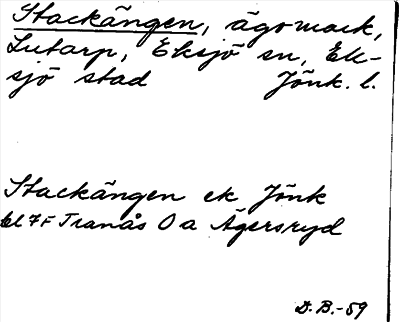 Stackängen, ägomark,
Lutarp, Eksjö sn, Ek-
sjö stad Jönk. l.
Stackängen ek Jönk
bl 7F Tranås O a Ägersryd
D.B.-59